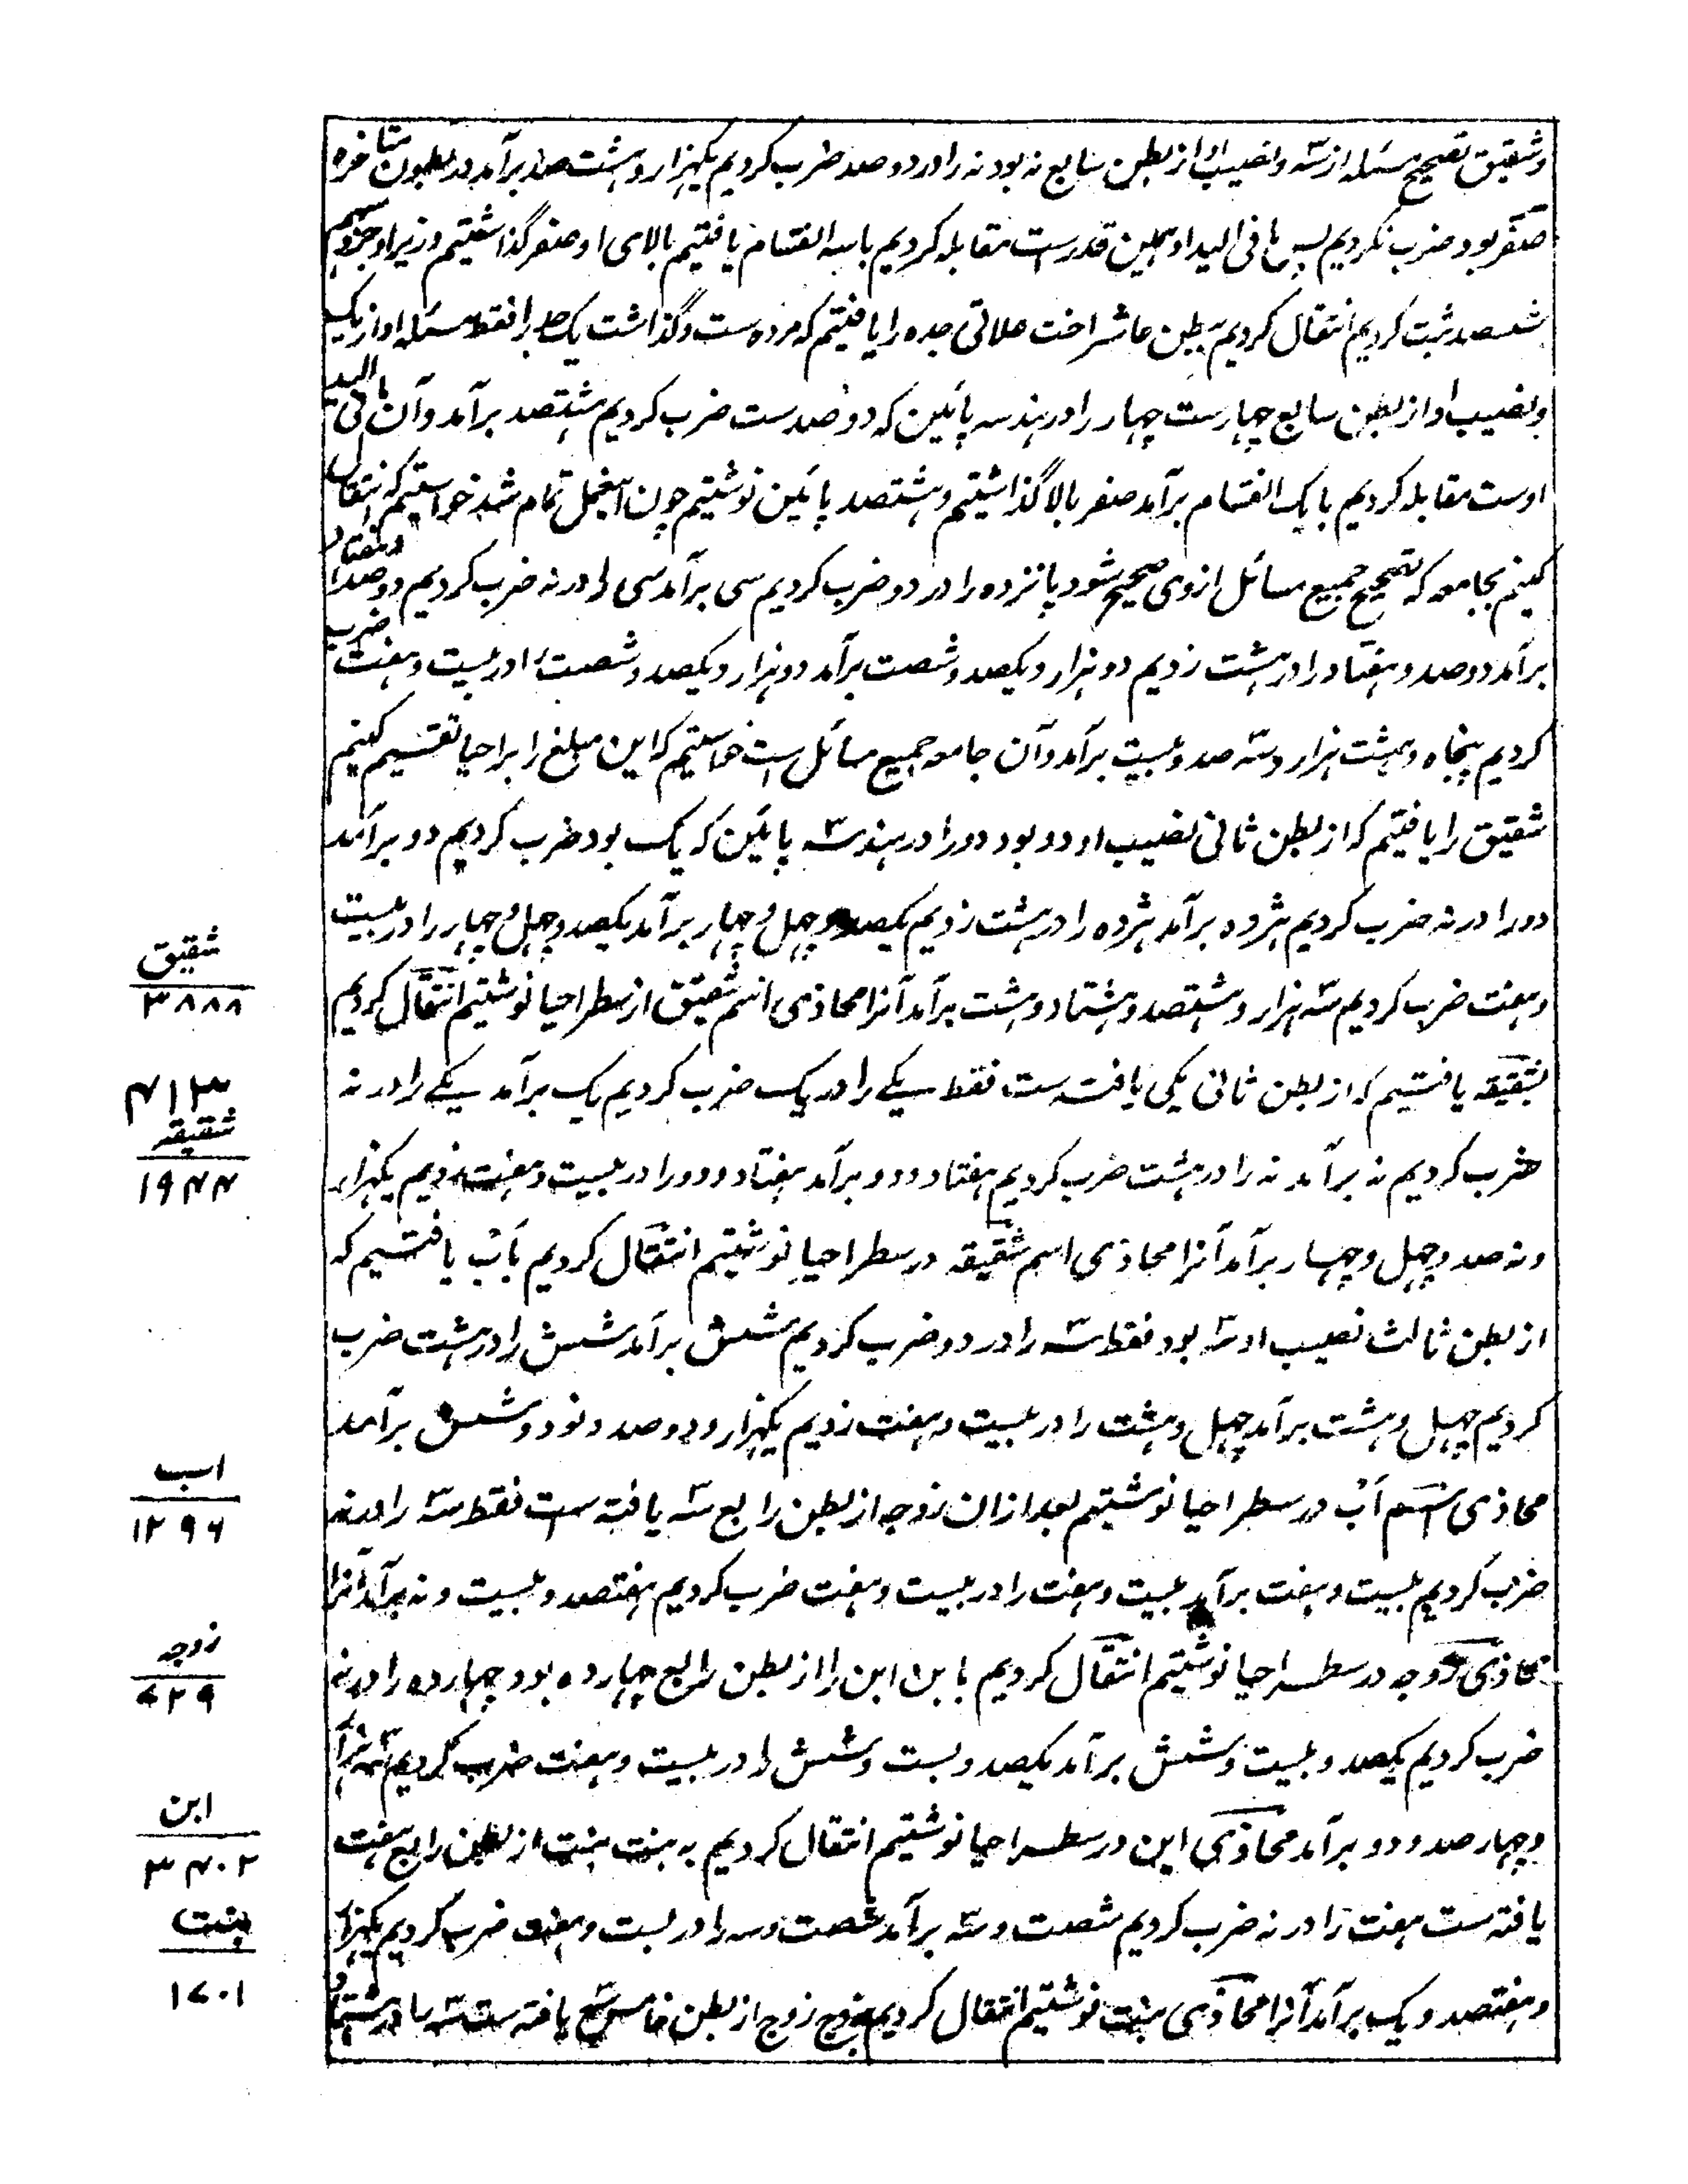 وشقیق تصحیح مسئله از سه ونصیب او از بطن سابع نه بود نه را در دو صد ضرب کردیم یکهزار و هشت صد برآمد در بطون متاخره
صفر بود ضرب نکردیم پس ما فی الید او همین قدرست مقابله کردیم با سه انقسام یافتیم بالای او صفر گذاشتیم و زیر او جزو سهم
ششصد ثبت کردیم انتقال کردیم ببطن عاشر اخت علاتی جده را یافتیم که مرده ست وگذاشت یک را فقط مسئله او از یک
ونصیب او از بطن سابع چهارست چهار را در هندسه پائین که دو صدست ضرب کردیم هشتصد برآمد وآن ما فی الید
اوست مقابله کردیم با یک انقسام برآمد صفر بالا گذاشتیم وهشتصد پائین نوشتیم چون این عمل تمام شد خواستیم که انتقال
کنیم بجامعه که تصحیح جمیع مسائل از وی صحیح شود پانزده را در دو ضرب کردیم سی برآمد سی را در نه ضرب کردیم دو صد و هفتاد
برآمد دو صد و هفتاد را در هشت زدیم دو هزار و یکصد و شصت برآمد دو هزار و یکصد و شصت را در بیست و هفت ضرب
کردیم پنجاه و هشت هزار و سه صد و بیست برآمد وآن جامعه جمیع مسائل ست خواستیم که این مبلغ را بر احیا تقسیم کنیم
شقیق را یافتیم که از بطن ثانی نصیب او دو بود دو را در هندسه پائین که یک بود ضرب کردیم دو برآمد
دو را در نه ضرب کردیم هژده برآمد هژده را در هشت زدیم یکصد و چهل و چهار برآمد یکصد و چهل و چهار را در بیست
و هفت ضرب کردیم سه هزار و هشتصد و هشتاد و هشت برآمد آنرا محاذی اسم شقیق از سطر احیا نوشتیم انتقال کردیم
شقیق
۳۸۸۸
بشقیقه یافتیم که از بطن ثانی یکی یافته ست فقط یکے را در یک ضرب کردیم یک برآمد یکے را در نه
ضرب کردیم نه برآمد نه را در هشت ضرب کردیم هفتاد و دو برآمد هفتاد و دو را در بیست و هفت زدیم یکهزار
شقیقه
۱۹۴۴
و نه صد و چهل و چهار برآمد آنرا محاذی اسم شقیقه در سطر احیا نوشتیم انتقال کردیم باب یافتیم که
از بطن ثالث نصیب او سه بود فقط سه را در دو ضرب کردیم شش برآمد شش را در هشت ضرب
کردیم چهل و هشت برآمد چهل و هشت را در بیست و هفت زدیم یکهزار و دو صد و نود و شش برآمد
محاذی اسم اب در سطر احیا نوشتیم بعد ازان زوجه از بطن رابع سه یافته ست فقط سه را در نه
اب
۱۲۹۶
ضرب کردیم بیست و هفت برآمد بیست و هفت را در بیست و هفت ضرب کردیم هفتصد و بیست و نه برآمد آنرا
محاذی زوجه در سطر احیا نوشتیم انتقال کردیم بابن ابن را از بطن رابع چهارده بود چهارده را در نه
زوجه
۷۲۹
ضرب کردیم یکصد و بیست و شش برآمد یکصد و بست و شش را در بیست و هفت ضرب کردیم سه هزار
و چهار صد و دو برآمد محاذی ابن در سطر احیا نوشتیم انتقال کردیم به بنت بنت از بطن رابع هفت
ابن
۳۴۰۲
یافته ست هفت را در نه ضرب کردیم شصت و سه برآمد شصت و سه را در بست و هفت ضرب کردیم یکهزار
و هفتصد و یک برآمد آنرا محاذی بنت نوشتیم انتقال کردیم بزوج زوج از بطن خامس یافته ست
بنت
۱۷۰۱